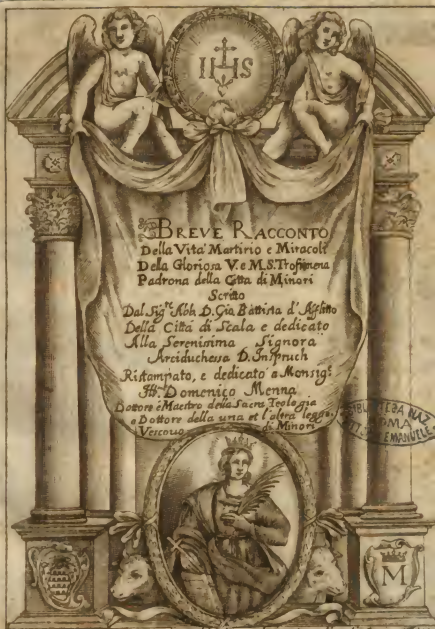 IHS
BREVE RACCONTO
Della Vita Martirio e Miracoli
Della Gloriosa V. e M. S. Trofimena
Padrona della Citta di Minori
Scritto
Dal Sig.r Abb. D. Gio Battista d'Afflitto
Della Città di Scala e dedicato
Alla Serenisima Signora
Arciduchessa D. Inspruch
Ristampato, e dedicato a Monsig.r
Domenico Menna
Dottore e Maestro della Sacra Teologia
e Dottore della una et l'altra legge
Vescovo di Minori
BIBLIOTECA NAZ
ROMA
VITT. EMANUELE
M